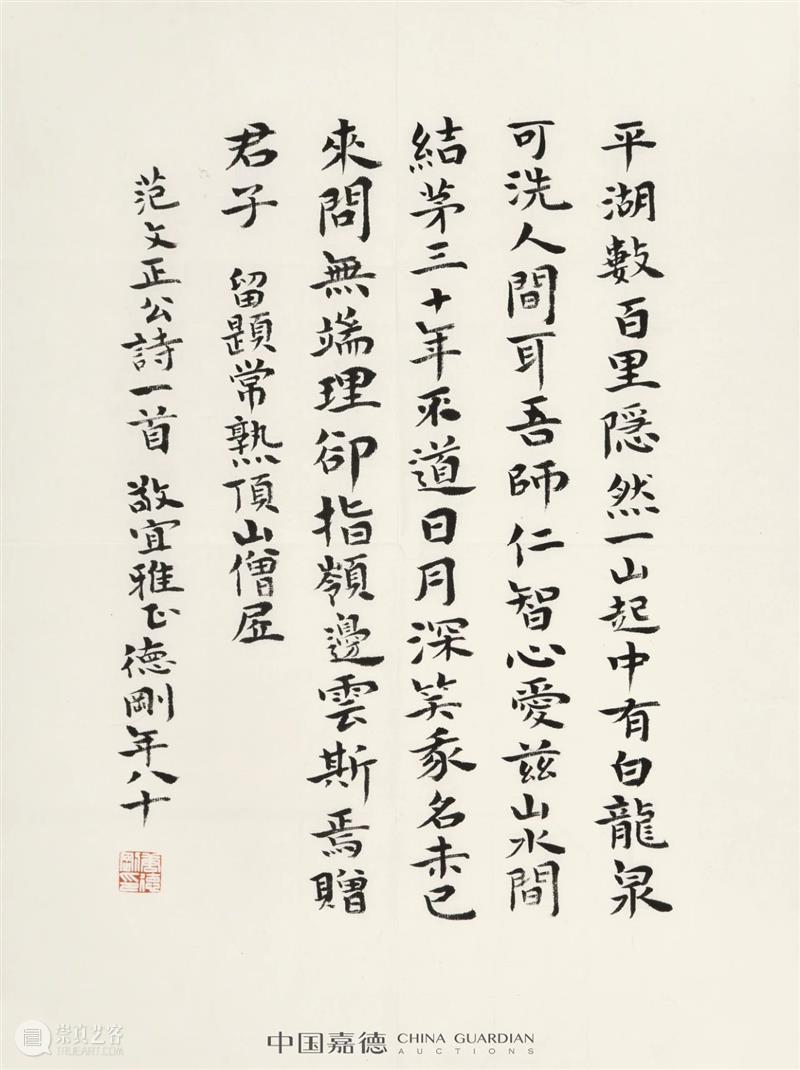 平湖數百里隱然一山起中有白龍泉
可洗人間耳吾師仁智心愛茲山水間
結茅三十年不道日月深笑我名未已
來問無端理卻指嶺邊雲斯焉贈
君子 留題常熟頂山僧居
范文正公詩一首 敬宜雅正 德剛年八十
唐德剛印
中国嘉德 CHINA GUARDIAN
AUCTIONS
崇真艺客
TRUEART.COM